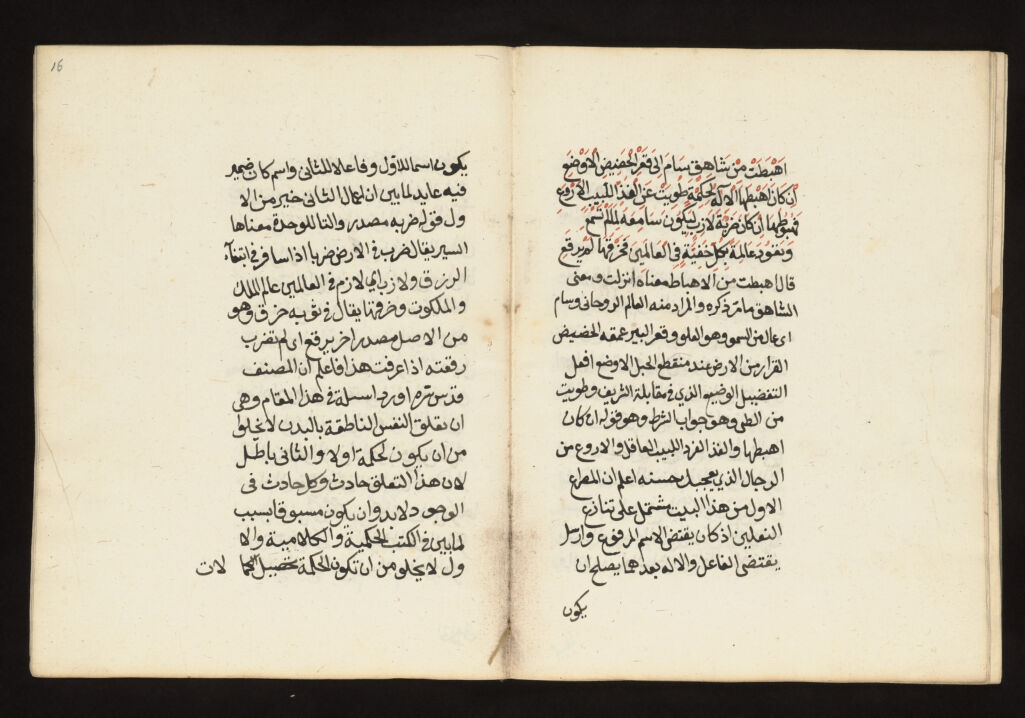 اهبطت من شاهق سام الى قعر الحضيض الاوضع
ان كان اهبطها الاله لحكمة طويت عن الفذ اللبيب الاروع
فهبوطها ان كان ضربة لازب ليكون سامعة لما لم تسمع
وتعود عالمة بكل خفية في العالمين فخرقها لم يرقع
قال هبطت من الاهباط معناه انزلت ومعنى
الشاهق ما مر ذكره والمراد منه العالم الروحانى وسام
اى عال من السمو وهو العلو وقعر البير عمقه الحضيض
القرار من الارض عند منقطع الجبل الاوضع افعل
التفضيل الوضيع الذي في مقابلة الشريف وطويت
من الطى وهو جواب الشرط وهو قوله ان كان
اهبطها والفذ الفرد اللبيب العاقل والاروع من
الرجال الذي يعجبك بحسنه اعلم ان المصراع
الاول من هذا البيت مشتمل على تنازع
الفعلين اذ كان يقتضى الاسم المرفوع وارسل
يقتضى الفاعل والاله بعدهما يصلح ان
يكون
16
يكون اسما للاول وفاعلا للثانى واسم كان ضمير
فيه عايد لما بين ان اعمال الثانى خير من الا
ول قوله ضربه مصدر والتا للوحدة معناها
السير يقال ضرب في الارض ضربا اذا سافر في ابتغآء
الرزق ولازب اي لازم في العالمين عالم الملك
والملكوت وخرقها يقال في ثوبه خرق وهو
من الاصل مصدر اخر يرقع اى لم تضرب
رقعته اذا عرفت هذا فاعلم ان المصنف
قدس سره اورد اسيلة في هذا المقام وهى
ان تعلق النفس الناطقة بالبدن لا يخلوا
من ان يكون لحكمة اولا والثانى باطل
لان هذا التعلق حادث وكل حادث فى
الوجود لا بد وان يكون مسبوقا بسبب
لما بين في الكتب الحكمية والكلامية والا
ول لا يخلو من ان تكون الحكمة تحصيل الكما لات